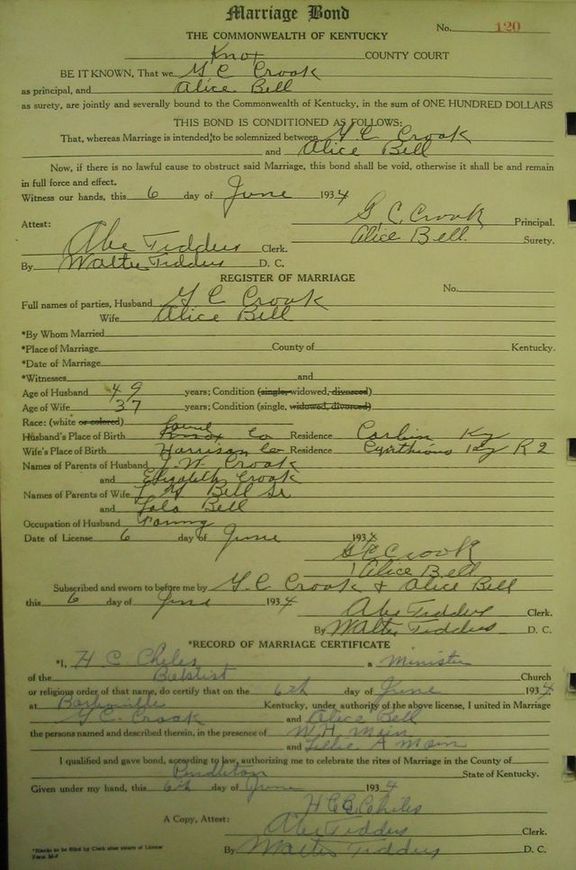 Marriage Bond
No. 120
THE COMMONWEALTH OF KENTUCKY
Knox COUNTY COURT
BE IT KNOWN, That we G C Crook
as principal, and Alice Bell
as surety, are jointly and severally bound to the Commonwealth of Kentucky, in the sum of ONE HUNDRED DOLLARS
THIS BOND IS CONDITIONED AS FOLLOWS:
That, whereas Marriage is intended to be solemnized between G C Crook
and Alice Bell
Now, if there is no lawful cause to obstruct said Marriage, this bond shall be void, otherwise it shall be and remain
in full force and effect.
Witness our hands, this 6 day of June 1934
G. C. Crook Principal.
Attest:
Alice Bell Surety.
Abe Tedders Clerk.
By Walter Tedders D. C.
REGISTER OF MARRIAGE
No.
Full names of parties, Husband G C Crook
Wife Alice Bell
*By Whom Married
*Place of Marriage County of Kentucky.
*Date of Marriage
*Witnesses and
Age of Husband 49 years; Condition (single, widowed, divorced)
Age of Wife 37 years; Condition (single, widowed, divorced)
Race: (white or colored) Laurel
Husband's Place of Birth Knox Co Residence Corbin Ky
Wife's Place of Birth Harrison Co Residence Cynthiana Ky R 2
Names of Parents of Husband W Crook
and Elizabeth Crook
Names of Parents of Wife Bell Sr
and Lola Bell
Occupation of Husband Farming
Date of License 6 day of June 1934
G C Crook
Alice Bell
Subscribed and sworn to before me by G. C Crook & Alice Bell
this 6 day of June 1934
Abe Tedders Clerk.
By Walter Tedders D. C.
*RECORD OF MARRIAGE CERTIFICATE
*I, H C Chiles a Minister
of the Babtist Church
or religious order of that name, do certify that on the 6th day of June 1934
at Barbourville Kentucky, under authority of the above license, I united in Marriage
G C. Crook and Alice Bell
the persons named and described therein, in the presence of W. H. Main
and Lillie A Main
I qualified and gave bond, according to law, authorizing me to celebrate the rites of Marriage in the County of
Pendleton State of Kentucky.
Given under my hand, this 6th day of June 1934
H C Chiles
A Copy, Attest: Abe Tedders Clerk.
By Walter Tedders D. C.
*Blanks to be filled by Clerk after return of License